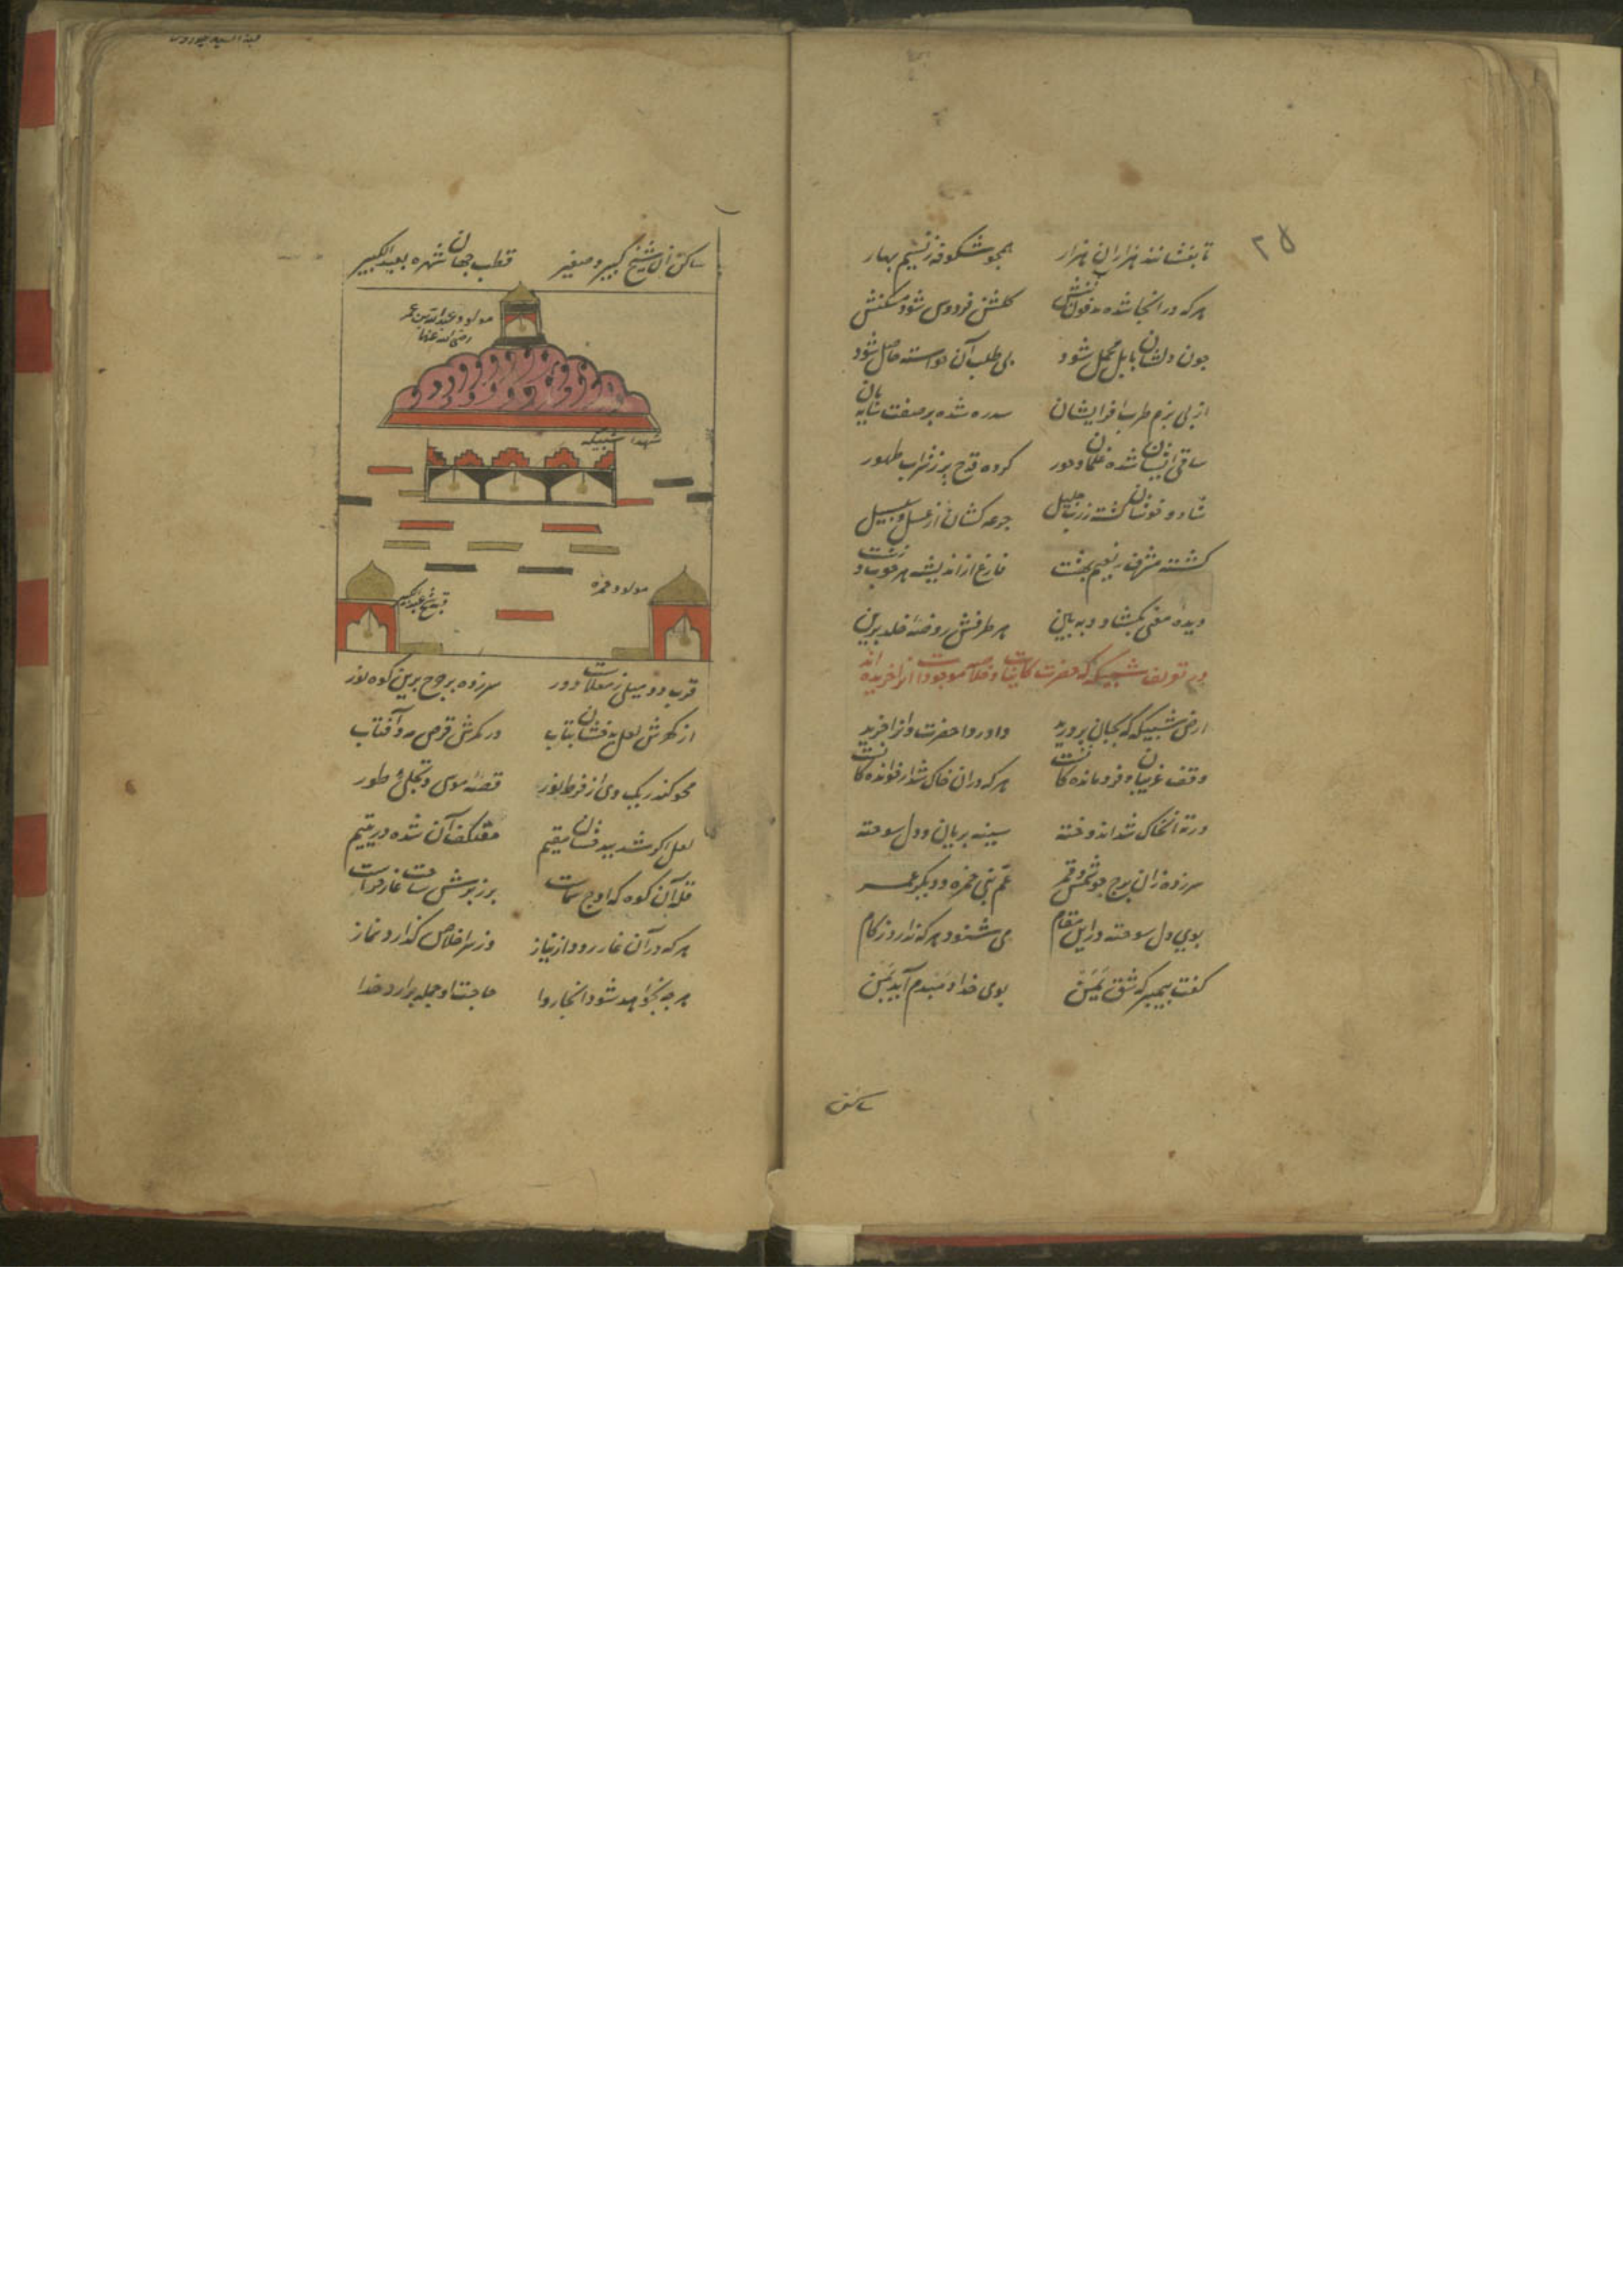 ۲۵
تا بفشانند هزاران هزار همچو شکوفه ز نسیم بهار
هر که در انجا شده مدفون تنش گلشن فردوس شود مسکنش
چون دلشان مایل محمل شود بی طلب آن خواسته حاصل شود
از پی بزم طرب افزایشان سدره شده بر صفت سایه بان
ساقی ایشان شده غلمان و حور کرده قدح پر ز شراب طهور
شاد و خوشان گشته ز رب جلیل جرعه کشان از عسل و سلسبیل
گشته مشرف به نعیم بهشت فارغ از اندیشه هر خوب و زشت
دیده معنی بگشا و به بین هر طرفش روضهٔ خلد برین
در تعریف شبیکه که حضرت کاینات و خلاصه موجودات انرا خریده اند
ارض شبیکه که بجان پرورید داور دوا حضرت و انرا خرید
وقف غریبان و فرومانده کانست هر که در ان خاک شد از خوانده کانست
در ته آن خاک شد اندوخته سینه بریان و دل سوخته
سر زده زان برج چو شمس و قمر عم نبی حمزه و دیگر عمر
بوی دل سوخته در این مقام می شنود هر که ندارد زکام
گفت پیمبر که ز شق یمن بوی خدا دمبدم آید بمن
ساکن
ساکن ان شیخ کبیر و صغیر قطب جهان شهره بعبد الکبیر
مولود عبد الله بن عمر
رضی الله عنهما
شهدا شبیکه
مولود حمزه
قبه شیخ عبد الکبیر
قرب دو میلی ز معلات دور سر زده بر چرخ برین کوه نور
از گهرش لعل بدخشان بتاب در کمرش قرص مه و آفتاب
محو کند ریک وی از فرط نور قصهٔ موسی و تجلی طور
لعل اگر شد ببدخشان مقیم معتکف آن شده در یتیم
قله آن کوه که اوج سماست برز برش ساحت غار حراست
هر که در آن غار رود از نیاز وز سر اخلاص گذارد نماز
هر چه بخواهد شود انجا روا حاجت او جمله برآرد خدا